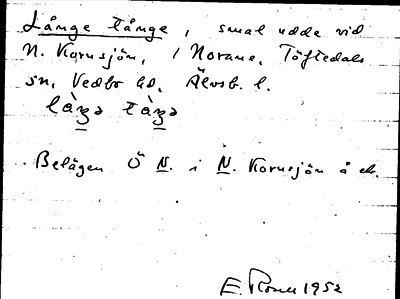 Långe tånge, smal udde vid
N. Kornsjön, i Norane, Töftedals
sn, Vedbo hd, Älvsb. l.
làŋə tàŋə
Belägen Ö N. i N. Kornsjön å ek.
E. 1952